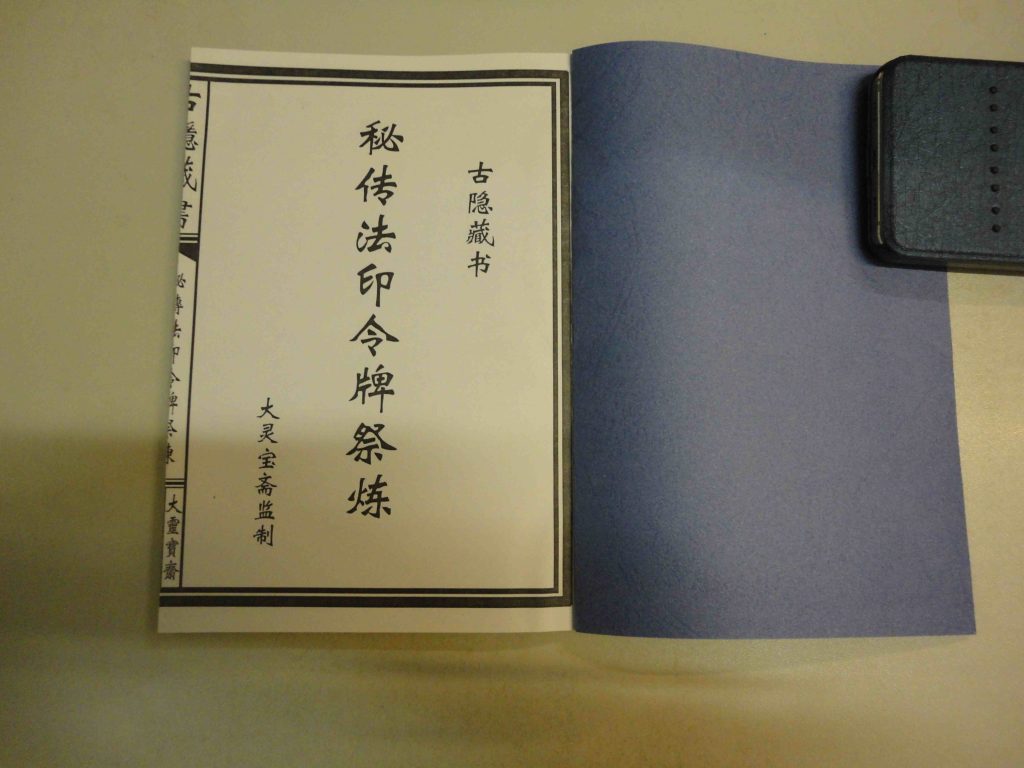 古隐藏书
秘传法印令牌祭炼
大灵宝斋监制
古隱藏書
秘傳法印令牌祭煉
大靈寶齋